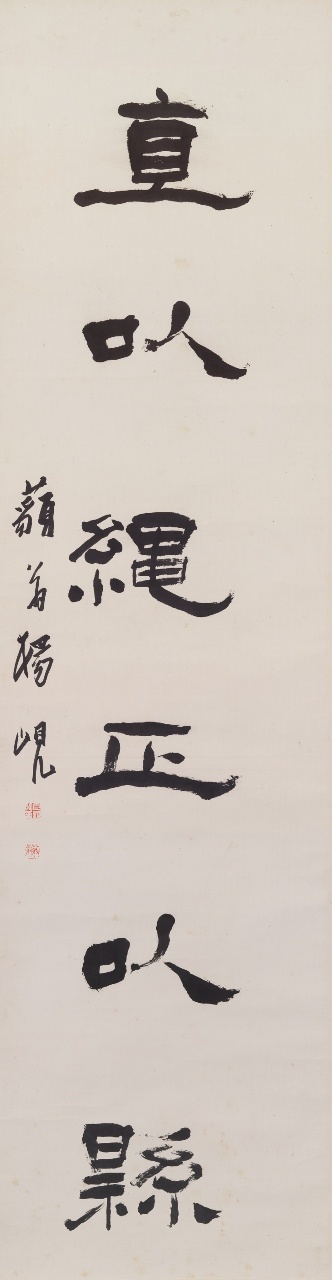 直㕥繩正㕥縣
藐翁楊峴